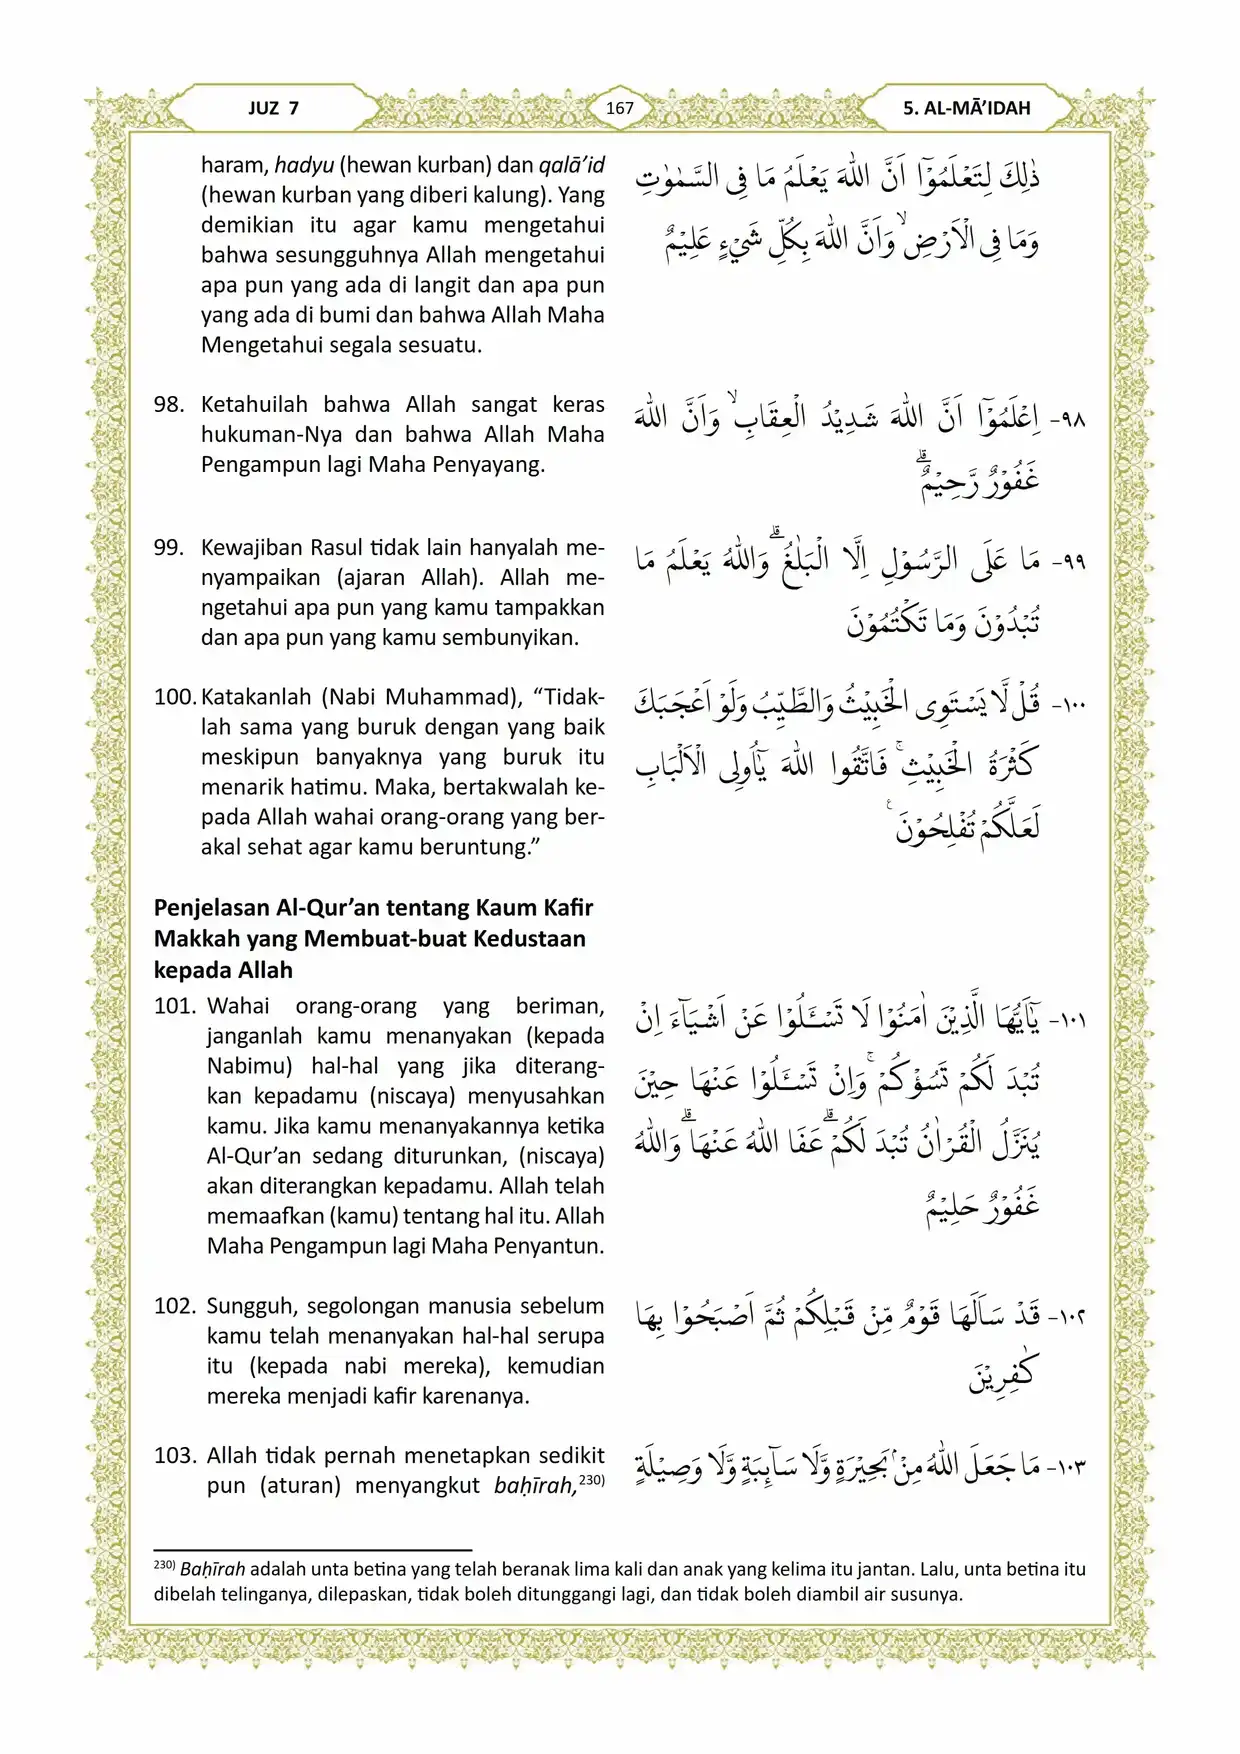 JUZ 7
167
5. AL-MĀ’IDAH
haram, hadyu (hewan kurban) dan qalā’id
(hewan kurban yang diberi kalung). Yang
demikian itu agar kamu mengetahui
bahwa sesungguhnya Allah mengetahui
apa pun yang ada di langit dan apa pun
yang ada di bumi dan bahwa Allah Maha
Mengetahui segala sesuatu.
ذٰلِكَ لِتَعْلَمُوْٓا اَنَّ اللّٰهَ يَعْلَمُ مَا فِى السَّمٰوٰتِ
وَمَا فِى الْاَرْضِۙ وَاَنَّ اللّٰهَ بِكُلِّ شَيْءٍ عَلِيْمٌ
98. Ketahuilah bahwa Allah sangat keras
hukuman-Nya dan bahwa Allah Maha
Pengampun lagi Maha Penyayang.
٩٨- اِعْلَمُوْٓا اَنَّ اللّٰهَ شَدِيْدُ الْعِقَابِۙ وَاَنَّ اللّٰهَ
غَفُوْرٌ رَّحِيْمٌۗ
99. Kewajiban Rasul tidak lain hanyalah me-
nyampaikan (ajaran Allah). Allah me-
ngetahui apa pun yang kamu tampakkan
dan apa pun yang kamu sembunyikan.
٩٩- مَا عَلَى الرَّسُوْلِ اِلَّا الْبَلٰغُۗ وَاللّٰهُ يَعْلَمُ مَا
تُبْدُوْنَ وَمَا تَكْتُمُوْنَ
100. Katakanlah (Nabi Muhammad), “Tidak-
lah sama yang buruk dengan yang baik
meskipun banyaknya yang buruk itu
menarik hatimu. Maka, bertakwalah ke-
pada Allah wahai orang-orang yang ber-
akal sehat agar kamu beruntung.”
١٠٠- قُلْ لَّا يَسْتَوِى الْخَبِيْثُ وَالطَّيِّبُ وَلَوْ اَعْجَبَكَ
كَثْرَةُ الْخَبِيْثِۚ فَاتَّقُوا اللّٰهَ يٰٓاُولِى الْاَلْبَابِ
لَعَلَّكُمْ تُفْلِحُوْنَ ࣖ
Penjelasan Al-Qur’an tentang Kaum Kafir
Makkah yang Membuat-buat Kedustaan
kepada Allah
101. Wahai orang-orang yang beriman,
janganlah kamu menanyakan (kepada
Nabimu) hal-hal yang jika diterang-
kan kepadamu (niscaya) menyusahkan
kamu. Jika kamu menanyakannya ketika
Al-Qur’an sedang diturunkan, (niscaya)
akan diterangkan kepadamu. Allah telah
memaafkan (kamu) tentang hal itu. Allah
Maha Pengampun lagi Maha Penyantun.
١٠١- يٰٓاَيُّهَا الَّذِيْنَ اٰمَنُوْا لَا تَسْـَٔلُوْا عَنْ اَشْيَاۤءَ اِنْ
تُبْدَ لَكُمْ تَسُؤْكُمْۚ وَاِنْ تَسْـَٔلُوْا عَنْهَا حِيْنَ
يُنَزَّلُ الْقُرْاٰنُ تُبْدَ لَكُمْۗ عَفَا اللّٰهُ عَنْهَاۗ وَاللّٰهُ
غَفُوْرٌ حَلِيْمٌ
102. Sungguh, segolongan manusia sebelum
kamu telah menanyakan hal-hal serupa
itu (kepada nabi mereka), kemudian
mereka menjadi kafir karenanya.
١٠٢- قَدْ سَاَلَهَا قَوْمٌ مِّنْ قَبْلِكُمْ ثُمَّ اَصْبَحُوْا بِهَا
كٰفِرِيْنَ
103. Allah tidak pernah menetapkan sedikit
pun (aturan) menyangkut baḥīrah,230)
١٠٣- مَا جَعَلَ اللّٰهُ مِنْۢ بَحِيْرَةٍ وَّلَا سَاۤىِٕبَةٍ وَّلَا وَصِيْلَةٍ
230) Baḥīrah adalah unta betina yang telah beranak lima kali dan anak yang kelima itu jantan. Lalu, unta betina itu
dibelah telinganya, dilepaskan, tidak boleh ditunggangi lagi, dan tidak boleh diambil air susunya.